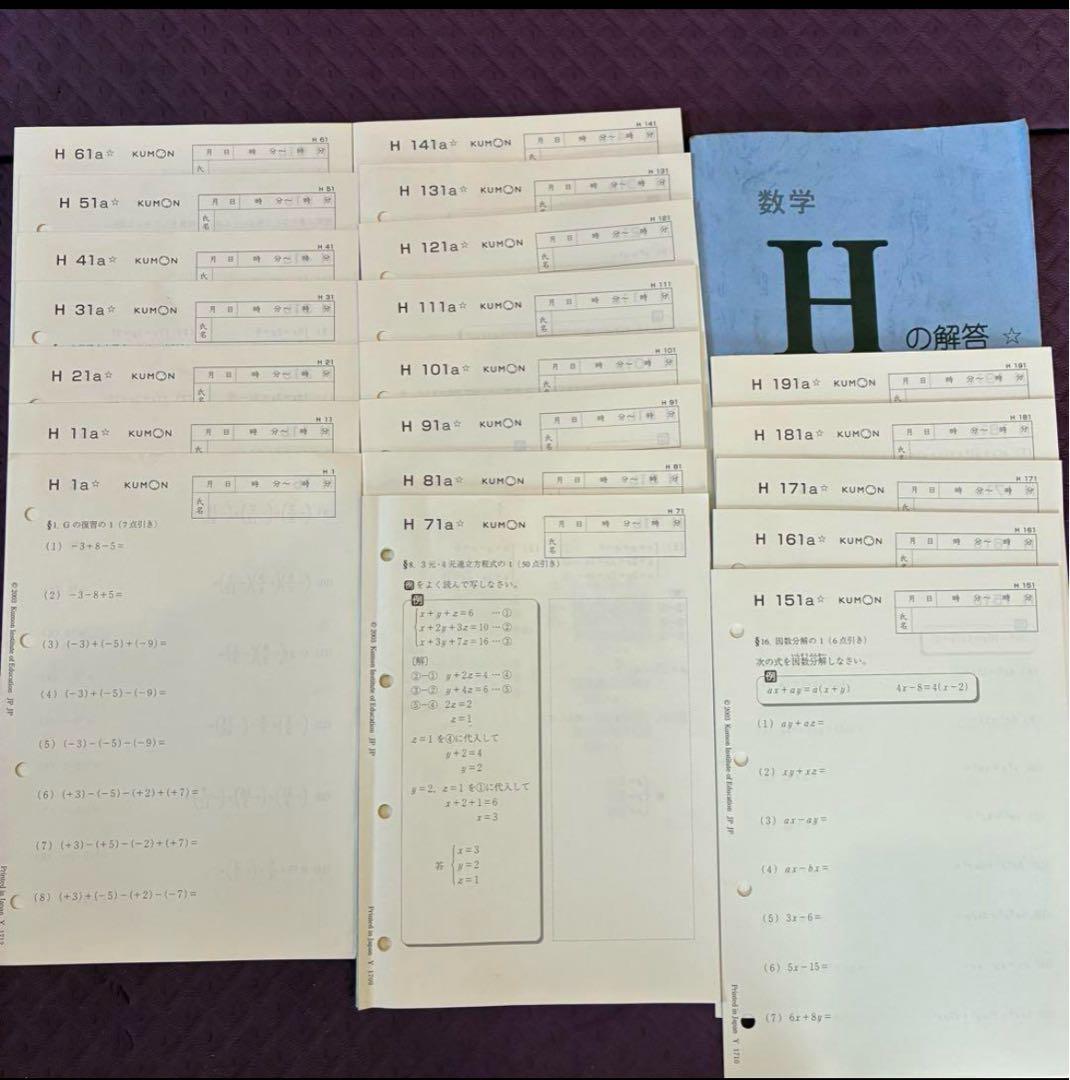 H 61
H 61a☆ KUMON 月 日 時 分〜 時 分
氏
H 51
H 51a☆ KUMON 月 日 時 分〜 時 分
氏名
H 41
H 41a☆ KUMON 月 日 時 分〜 時 分
氏
H 31
H 31a☆ KUMON 月 日 時 分〜 時 分
氏名
H 21
H 21a☆ KUMON 月 日 時 分〜 時 分
氏名
H 11
H 11a☆ KUMON 月 日 時 分〜 時 分
H 1
H 1a☆ KUMON 月 日 時 分〜 時 分
氏名
§1. Gの復習の1(7点引き)
(1) −3+8−5=
(2) −3−8+5=
(3) (−3)+(−5)+(−9)=
(4) (−3)+(−5)−(−9)=
(5) (−3)−(−5)−(−9)=
(6) (+3)−(−5)−(+2)+(+7)=
(7) (+3)−(+5)−(−2)+(+7)=
(8) (+3)+(−5)−(+2)−(−7)=
© 2003 Kumon Institute of Education JP JP
Printed in Japan Y 1712
H 141
H 141a☆ KUMON 月 日 時 分〜 時 分
氏
H 131
H 131a☆ KUMON 月 日 時 分〜 時 分
氏名
H 121
H 121a☆ KUMON 月 日 時 分〜 時 分
氏名
H 111
H 111a☆ KUMON 月 日 時 分〜 時 分
氏名
H 101
H 101a☆ KUMON 月 日 時 分〜 時 分
氏名
H 91
H 91a☆ KUMON 月 日 時 分〜 時 分
氏名
H 81
H 81a☆ KUMON 月 日 時 分〜 時 分
H 71
H 71a☆ KUMON 月 日 時 分〜 時 分
氏名
§8. 3元・4元連立方程式の1(50点引き)
例をよく読んで写しなさい。
例
x+y+z=6 …①
x+2y+3z=10 …②
x+3y+7z=16 …③
〔解〕
②−① y+2z=4 …④
③−② y+4z=6 …⑤
⑤−④ 2z=2
z=1
z=1を④に代入して
y+2=4
y=2
y=2, z=1を①に代入して
x+2+1=6
x=3
x=3
答 y=2
z=1
© 2003 Kumon Institute of Education JP JP
Printed in Japan Y 1709
数学
H
の解答 ☆
H 191
H 191a☆ KUMON 月 日 時 分〜 時 分
氏
H 181
H 181a☆ KUMON 月 日 時 分〜 時 分
氏名
H 171
H 171a☆ KUMON 月 日 時 分〜 時 分
氏
H 161
H 161a☆ KUMON 月 日 時 分〜 時 分
氏名
H 151
H 151a☆ KUMON 月 日 時 分〜 時 分
氏名
§16. 因数分解の1(6点引き)
次の式を因数分解しなさい。
例
ax+ay=a(x+y) 4x−8=4(x−2)
(1) ay+az=
(2) xy+xz=
(3) ax−ay=
(4) ax−bx=
(5) 3x−6=
(6) 5x−15=
(7) 6x+8y=
© 2003 Kumon Institute of Education JP JP
Printed in Japan Y 1710